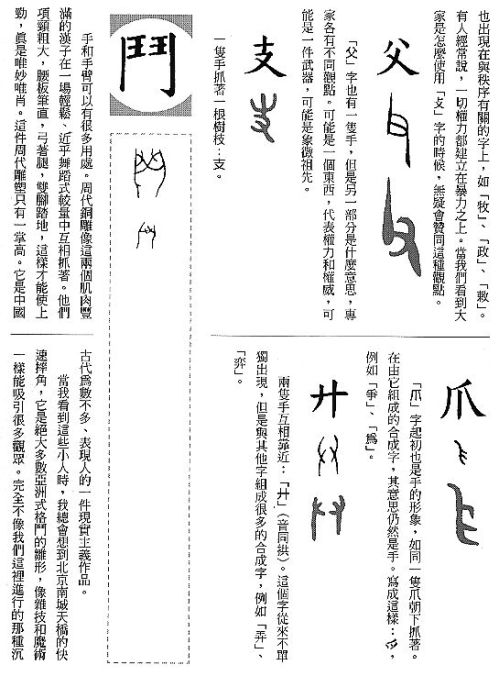 也出現在與秩序有關的字上，如「牧」、「政」、「敎」。
有人經常說，一切權力都建立在暴力之上。當我們看到大
家是怎麼使用「攴」字的時候，無疑會贊同這種觀點。
父
「父」字也有一隻手，但是另一部分是什麼意思，專
家各有不同觀點。可能是一個東西，代表權力和權威，可
能是一件武器，可能是象徵祖先。
支
一隻手抓著一根樹枝：支。
爪
「爪」字起初也是手的形象，如同一隻爪朝下抓著。
在由它組成的合成字，其意思仍然是手。寫成這樣：爫，
例如「爭」、「爲」。
廾
兩隻手互相靠近：「廾」（音同拱）。這個字從來不單
獨出現，但是與其他字組成很多的合成字，例如「弄」、
「弈」。
鬥
手和手臂可以有很多用處。周代銅雕像這兩個肌肉豐
滿的漢子在一場輕鬆、近乎舞蹈式較量中互相抓著。他們
項頸粗大，腰板筆直，弓著腿，雙腳踏地，這樣才能使上
勁，眞是唯妙唯肖。這件周代雕塑只有一掌高。它是中國
古代爲數不多、表現人的一件現實主義作品。
當我看到這些小人時，我總會想到北京南城天橋的快
速摔角，它是絕大多數亞洲式格鬥的雛形，像雜技和魔術
一樣能吸引很多觀眾。完全不像我們這裡進行的那種沉